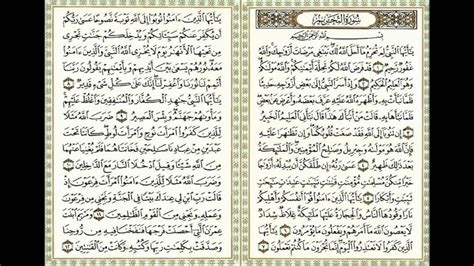 سورة التحريم
بسم الله الرحمن الرحيم
يَٰٓأَيُّهَا ٱلنَّبِيُّ لِمَ تُحَرِّمُ مَآ أَحَلَّ ٱللَّهُ لَكَ تَبْتَغِى مَرْضَاتَ أَزْوَٰجِكَ وَٱللَّهُ
غَفُورٌ رَّحِيمٌ ١ قَدْ فَرَضَ ٱللَّهُ لَكُمْ تَحِلَّةَ أَيْمَٰنِكُمْ وَٱللَّهُ مَوْلَىٰكُمْ
وَهُوَ ٱلْعَلِيمُ ٱلْحَكِيمُ ٢ وَإِذْ أَسَرَّ ٱلنَّبِيُّ إِلَىٰ بَعْضِ أَزْوَٰجِهِۦ حَدِيثًا
فَلَمَّا نَبَّأَتْ بِهِۦ وَأَظْهَرَهُ ٱللَّهُ عَلَيْهِ عَرَّفَ بَعْضَهُۥ وَأَعْرَضَ عَنۢ بَعْضٍ
فَلَمَّا نَبَّأَهَا بِهِۦ قَالَتْ مَنْ أَنۢبَأَكَ هَٰذَا قَالَ نَبَّأَنِىَ ٱلْعَلِيمُ ٱلْخَبِيرُ
٣ إِن تَتُوبَآ إِلَى ٱللَّهِ فَقَدْ صَغَتْ قُلُوبُكُمَا وَإِن تَظَٰهَرَا عَلَيْهِ
فَإِنَّ ٱللَّهَ هُوَ مَوْلَىٰهُ وَجِبْرِيلُ وَصَٰلِحُ ٱلْمُؤْمِنِينَ وَٱلْمَلَٰٓئِكَةُ
بَعْدَ ذَٰلِكَ ظَهِيرٌ ٤ عَسَىٰ رَبُّهُۥٓ إِن طَلَّقَكُنَّ أَن يُبْدِلَهُۥٓ أَزْوَٰجًا
خَيْرًا مِّنكُنَّ مُسْلِمَٰتٍ مُّؤْمِنَٰتٍ قَٰنِتَٰتٍ تَٰٓئِبَٰتٍ عَٰبِدَٰتٍ سَٰٓئِحَٰتٍ
ثَيِّبَٰتٍ وَأَبْكَارًا ٥ يَٰٓأَيُّهَا ٱلَّذِينَ ءَامَنُوا۟ قُوٓا۟ أَنفُسَكُمْ وَأَهْلِيكُمْ
نَارًا وَقُودُهَا ٱلنَّاسُ وَٱلْحِجَارَةُ عَلَيْهَا مَلَٰٓئِكَةٌ غِلَاظٌ شِدَادٌ
لَّا يَعْصُونَ ٱللَّهَ مَآ أَمَرَهُمْ وَيَفْعَلُونَ مَا يُؤْمَرُونَ ٦ يَٰٓأَيُّهَا
ٱلَّذِينَ كَفَرُوا۟ لَا تَعْتَذِرُوا۟ ٱلْيَوْمَ إِنَّمَا تُجْزَوْنَ مَا كُنتُمْ تَعْمَلُونَ ٧
يَٰٓأَيُّهَا ٱلَّذِينَ ءَامَنُوا۟ تُوبُوٓا۟ إِلَى ٱللَّهِ تَوْبَةً نَّصُوحًا عَسَىٰ رَبُّكُمْ
أَن يُكَفِّرَ عَنكُمْ سَيِّـَٔاتِكُمْ وَيُدْخِلَكُمْ جَنَّٰتٍ تَجْرِى
مِن تَحْتِهَا ٱلْأَنْهَٰرُ يَوْمَ لَا يُخْزِى ٱللَّهُ ٱلنَّبِىَّ وَٱلَّذِينَ ءَامَنُوا۟
مَعَهُۥ نُورُهُمْ يَسْعَىٰ بَيْنَ أَيْدِيهِمْ وَبِأَيْمَٰنِهِمْ يَقُولُونَ رَبَّنَآ
أَتْمِمْ لَنَا نُورَنَا وَٱغْفِرْ لَنَآ إِنَّكَ عَلَىٰ كُلِّ شَىْءٍ قَدِيرٌ ٨
يَٰٓأَيُّهَا ٱلنَّبِىُّ جَٰهِدِ ٱلْكُفَّارَ وَٱلْمُنَٰفِقِينَ وَٱغْلُظْ عَلَيْهِمْ
وَمَأْوَىٰهُمْ جَهَنَّمُ وَبِئْسَ ٱلْمَصِيرُ ٩ ضَرَبَ ٱللَّهُ مَثَلًا
لِّلَّذِينَ كَفَرُوا۟ ٱمْرَأَتَ نُوحٍ وَٱمْرَأَتَ لُوطٍ كَانَتَا تَحْتَ
عَبْدَيْنِ مِنْ عِبَادِنَا صَٰلِحَيْنِ فَخَانَتَاهُمَا فَلَمْ يُغْنِيَا عَنْهُمَا
مِنَ ٱللَّهِ شَيْـًٔا وَقِيلَ ٱدْخُلَا ٱلنَّارَ مَعَ ٱلدَّٰخِلِينَ ١٠
وَضَرَبَ ٱللَّهُ مَثَلًا لِّلَّذِينَ ءَامَنُوا۟ ٱمْرَأَتَ فِرْعَوْنَ إِذْ
قَالَتْ رَبِّ ٱبْنِ لِى عِندَكَ بَيْتًا فِى ٱلْجَنَّةِ وَنَجِّنِى مِن فِرْعَوْنَ
وَعَمَلِهِۦ وَنَجِّنِى مِنَ ٱلْقَوْمِ ٱلظَّٰلِمِينَ ١١ وَمَرْيَمَ ٱبْنَتَ
عِمْرَٰنَ ٱلَّتِىٓ أَحْصَنَتْ فَرْجَهَا فَنَفَخْنَا فِيهِ مِن رُّوحِنَا
وَصَدَّقَتْ بِكَلِمَٰتِ رَبِّهَا وَكُتُبِهِۦ وَكَانَتْ مِنَ ٱلْقَٰنِتِينَ ١٢